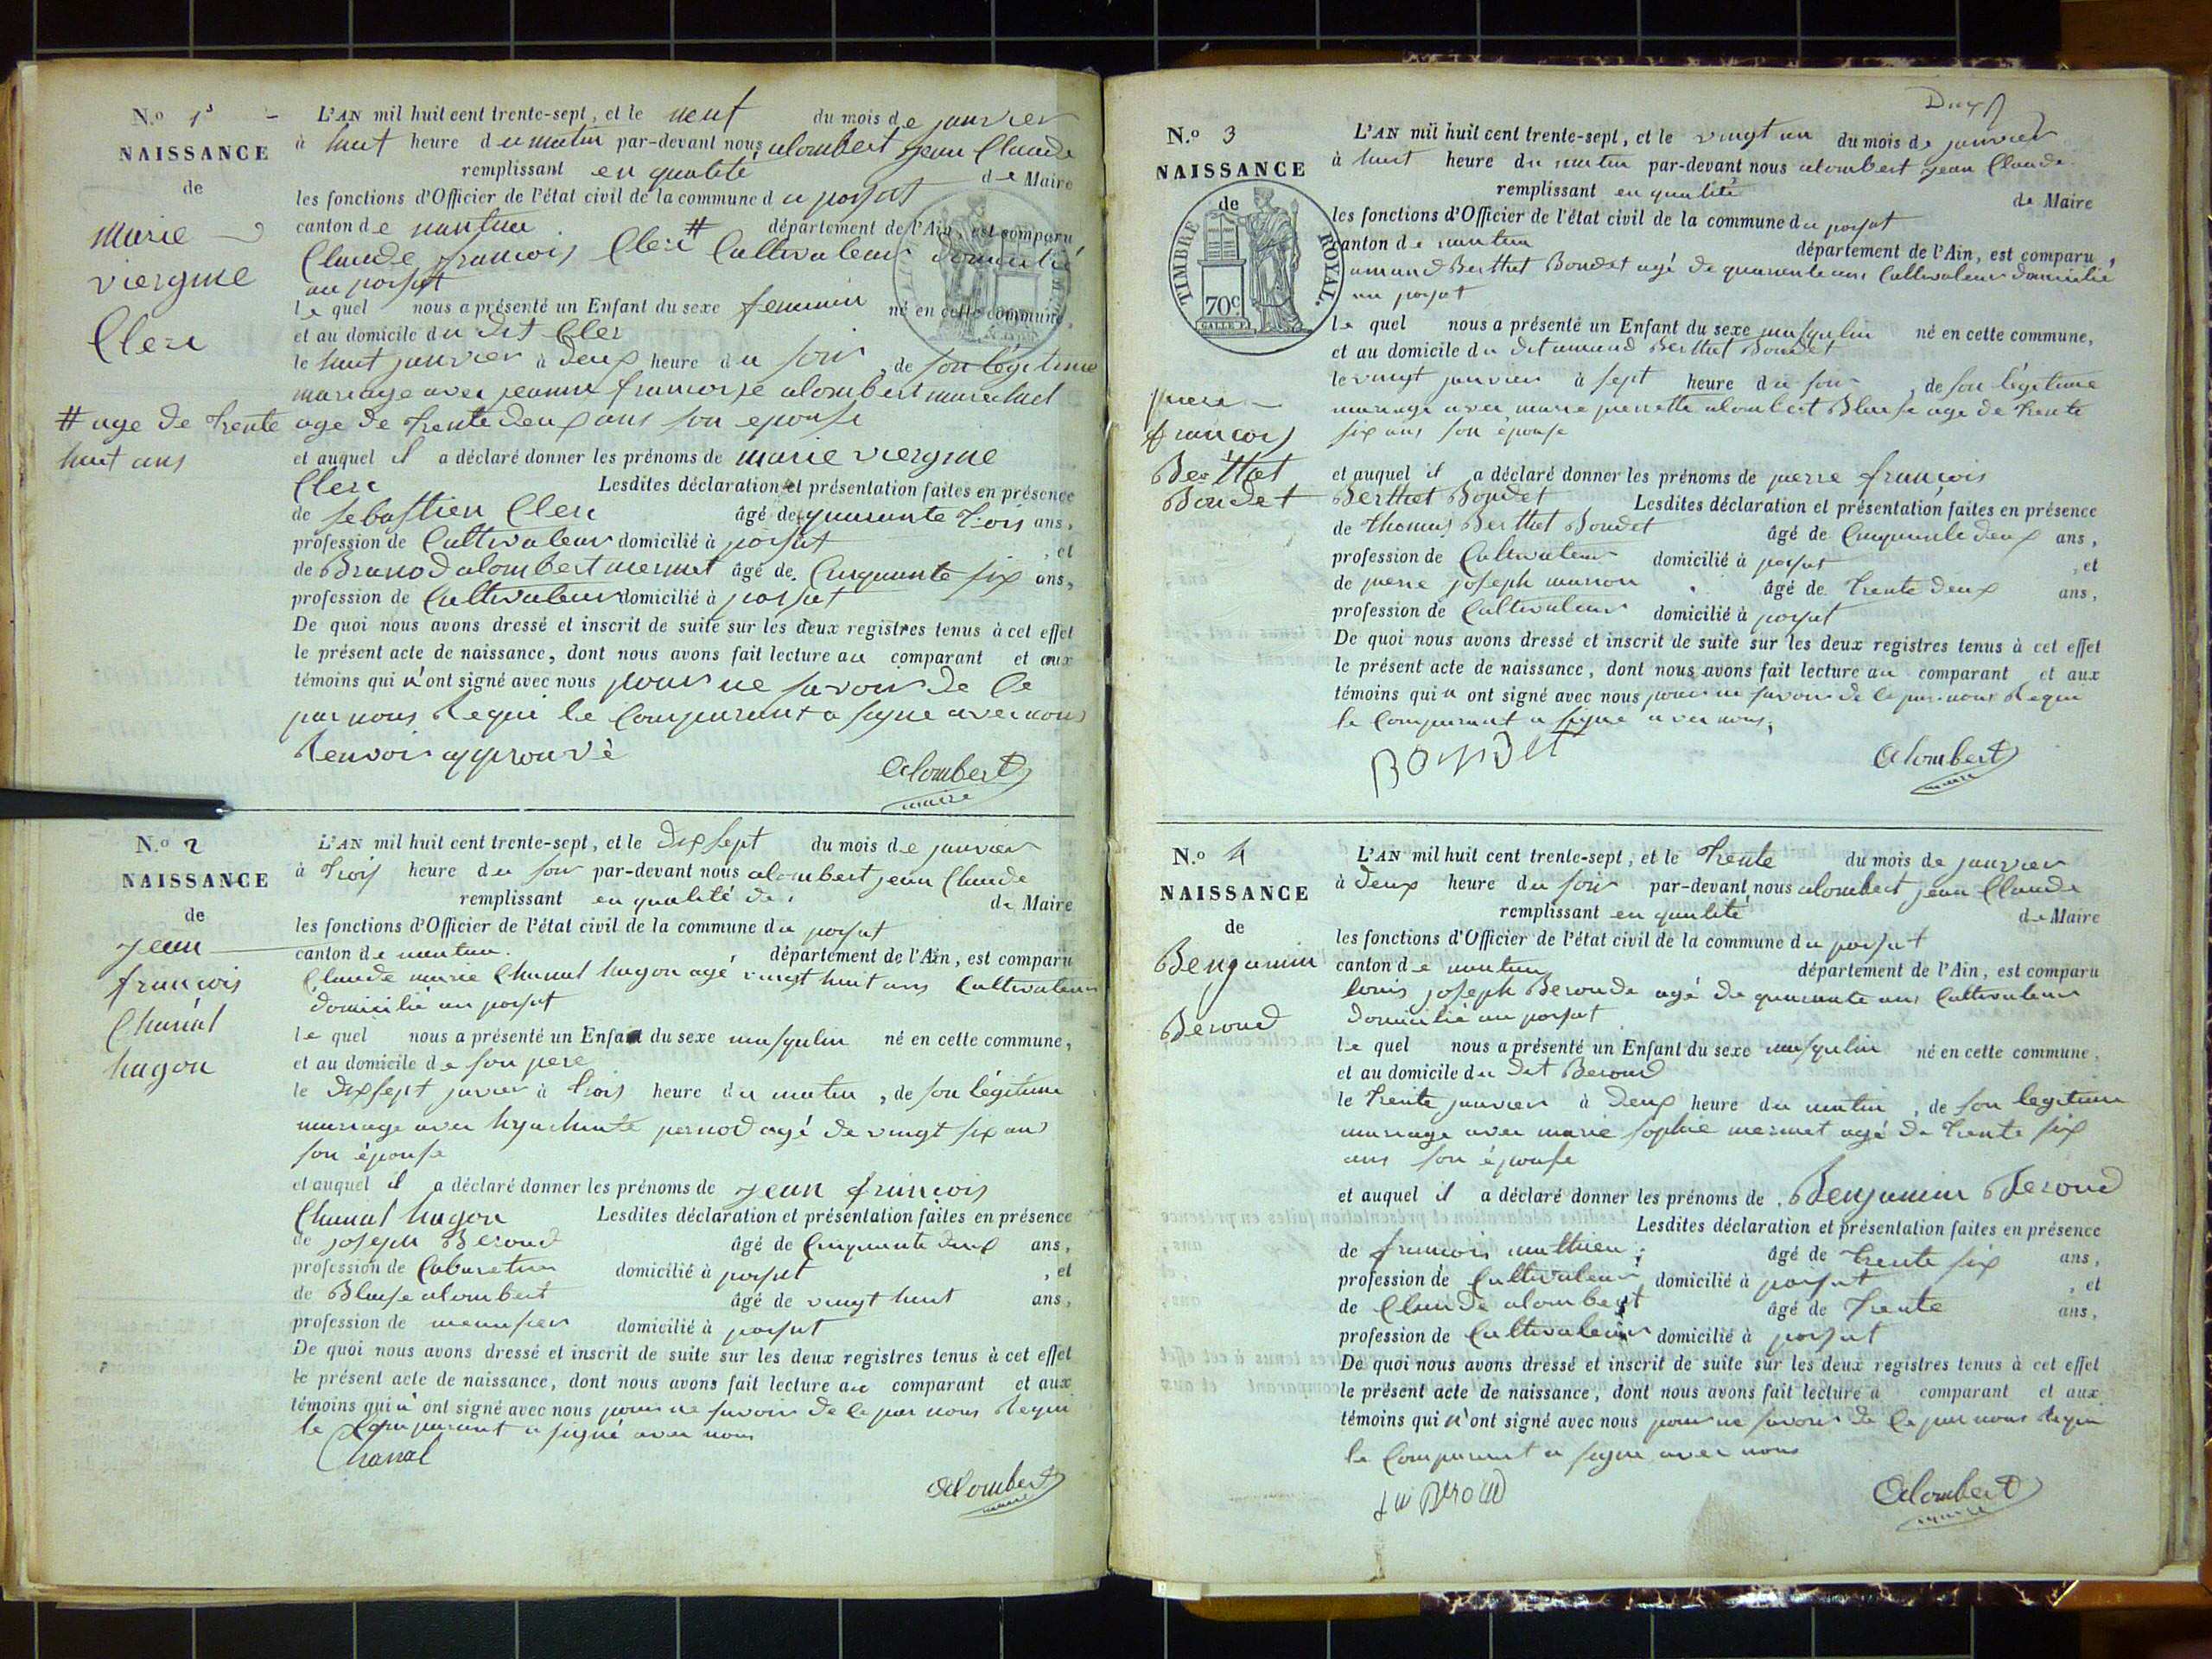 N.o 1er
NAISSANCE
de
marie
viergine
Clerc
# age de trente
huit ans
L'AN mil huit cent trente-sept, et le neuf du mois de janvier
à huit heure du matin par-devant nous alombert jean Claude
remplissant en qualité de Maire
les fonctions d'Officier de l'état civil de la commune du poizat
canton de nantua département de l'Ain, est comparu
Claude françois Clerc # Cultivateur domicilié
au poizat
le quel nous a présenté un Enfant du sexe feminin né en cette commune,
et au domicile du dit Clerc
le huit janvier à deux heure du soir, de son légitime
mariage avec jeanne françoise alombert marechal
age de trente deux ans son epouse
et auquel il a déclaré donner les prénoms de marie viergine
Clerc Lesdites déclaration et présentation faites en présence
de sebastien Clerc âgé de quarante trois ans,
profession de Cultivateur domicilié à poizat, et
de Brunod alombert mermet âgé de Cinquante six ans,
profession de Cultivateur domicilié à poizat
De quoi nous avons dressé et inscrit de suite sur les deux registres tenus à cet effet
le présent acte de naissance, dont nous avons fait lecture au comparant et aux
témoins qui n'ont signé avec nous pour ne savoir de Ce
par nous Requi le Comparant a signe avec nous
Renvoir approuvé
Alombert
maire
N.o 2
NAISSANCE
de
jean
françois
Chanal
hugon
L'AN mil huit cent trente-sept, et le dix sept du mois de janvier
à trois heure du soir par-devant nous alombert jean Claude
remplissant en qualité de de Maire
les fonctions d'Officier de l'état civil de la commune du poizat
canton de nantua. département de l'Ain, est comparu
Claude marie Chanal hugon agé vingt huit ans Cultivateur
domicilié au poizat
le quel nous a présenté un Enfant du sexe masqulin né en cette commune,
et au domicile de son pere
le dix sept janvier à trois heure du matin, de son légitime
mariage avec hyachinte pernod agé de vingt six ans
son épouse
et auquel il a déclaré donner les prénoms de jean françois
Chanal hugon Lesdites déclaration et présentation faites en présence
de joseph Beroud âgé de Cinquante deux ans,
profession de Cabaretier domicilié à poizat, et
de Blaise alombert âgé de vingt huit ans,
profession de menusier domicilié à poizat
De quoi nous avons dressé et inscrit de suite sur les deux registres tenus à cet effet
le présent acte de naissance, dont nous avons fait lecture au comparant et aux
témoins qui n'ont signé avec nous pour ne savoir de Ce par nous Requi
le Comparant a signé avec nous
Chanal
Alombert
maire
N.o 3
NAISSANCE
de
TIMBRE ROYAL.
70c
pierre
françois
Berthet
Boudet
L'AN mil huit cent trente-sept, et le vingt un du mois de janvier
à huit heure du matin par-devant nous alombert jean Claude
remplissant en qualité de Maire
les fonctions d'Officier de l'état civil de la commune du poizat
canton de nantua département de l'Ain, est comparu,
amand Berthet Boudet agé de quarante ans Cultivateur domicilié
au poizat
le quel nous a présenté un Enfant du sexe masqulin né en cette commune,
et au domicile du dit amand Berthet Boudet
le vingt janvier à sept heure du soir, de son légitime
mariage avec marie pierrette alombert Blaise age de trente
six ans son épouse
et auquel il a déclaré donner les prénoms de pierre françois
Berthet Boudet Lesdites déclaration et présentation faites en présence
de thomas Berthet Boudet âgé de Cinquante deux ans,
profession de Cultivateur domicilié à poizat, et
de pierre joseph âgé de trente deux ans,
profession de Cultivateur domicilié à poizat
De quoi nous avons dressé et inscrit de suite sur les deux registres tenus à cet effet
le présent acte de naissance, dont nous avons fait lecture au comparant et aux
témoins qui n ont signé avec nous pour ne savoir de Ce par nous Requi
le Comparant a signe avec nous,
Alombert
maire
N.o 4
NAISSANCE
de
Bengamin
Beroud
L'AN mil huit cent trente-sept, et le trente du mois de janvier
à deux heure du soir par-devant nous alombert jean Claude
remplissant en qualité de Maire
les fonctions d'Officier de l'état civil de la commune du poizat
canton de nantua département de l'Ain, est comparu
louis joseph Beroud agé de quarante ans Cultivateur
domicilié au poizat
le quel nous a présenté un Enfant du sexe masqulin né en cette commune,
et au domicile du dit Beroud
le trente janvier à deux heure du matin, de son legitime
mariage avec marie sophie mermet agé de trente six
ans son épouse
et auquel il a déclaré donner les prénoms de Benjamin Beroud
Lesdites déclaration et présentation faites en présence
de francois mathieu âgé de trente six ans,
profession de Cultivateur domicilié à poizat, et
de Claude alombert âgé de trente ans,
profession de Cultivateur domicilié à poizat
De quoi nous avons dressé et inscrit de suite sur les deux registres tenus à cet effet
le présent acte de naissance, dont nous avons fait lecture à comparant et aux
témoins qui n'ont signé avec nous pour ne savoir de Ce par nous Requi
le Comparant a signe avec nous
Beroud
Alombert
maire